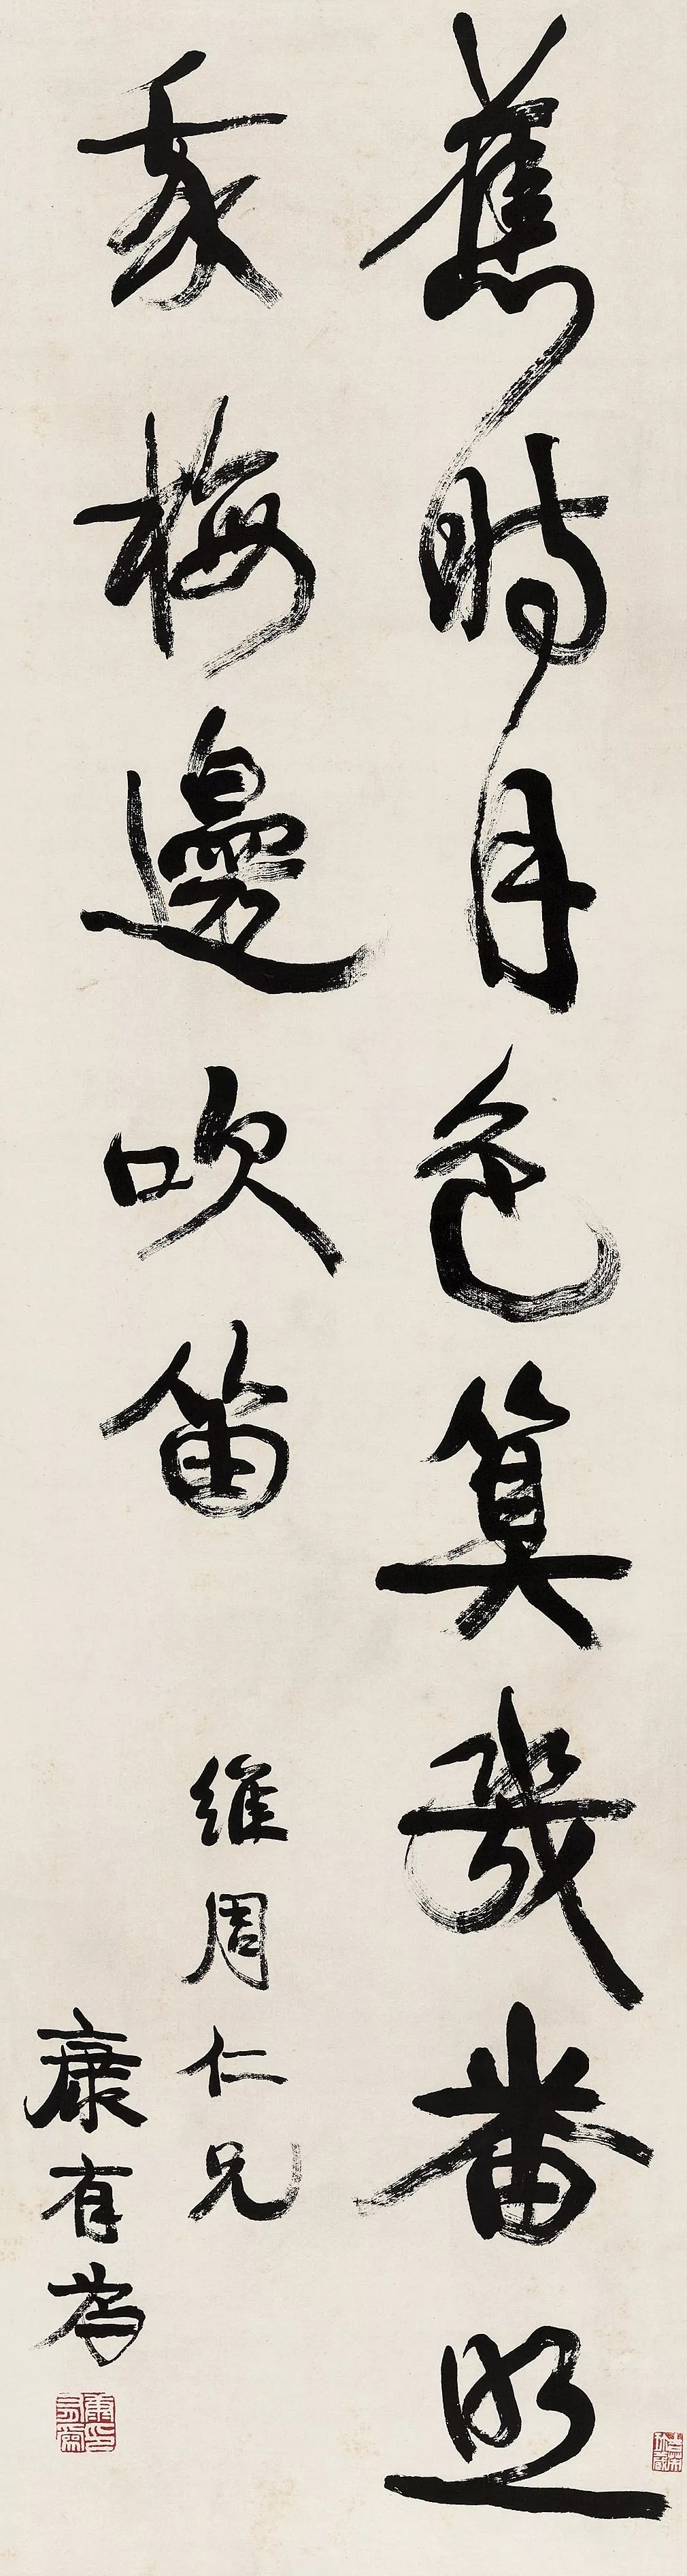 舊時月色算幾番照
我梅邊吹笛
維周仁兄
康有為
康有為印